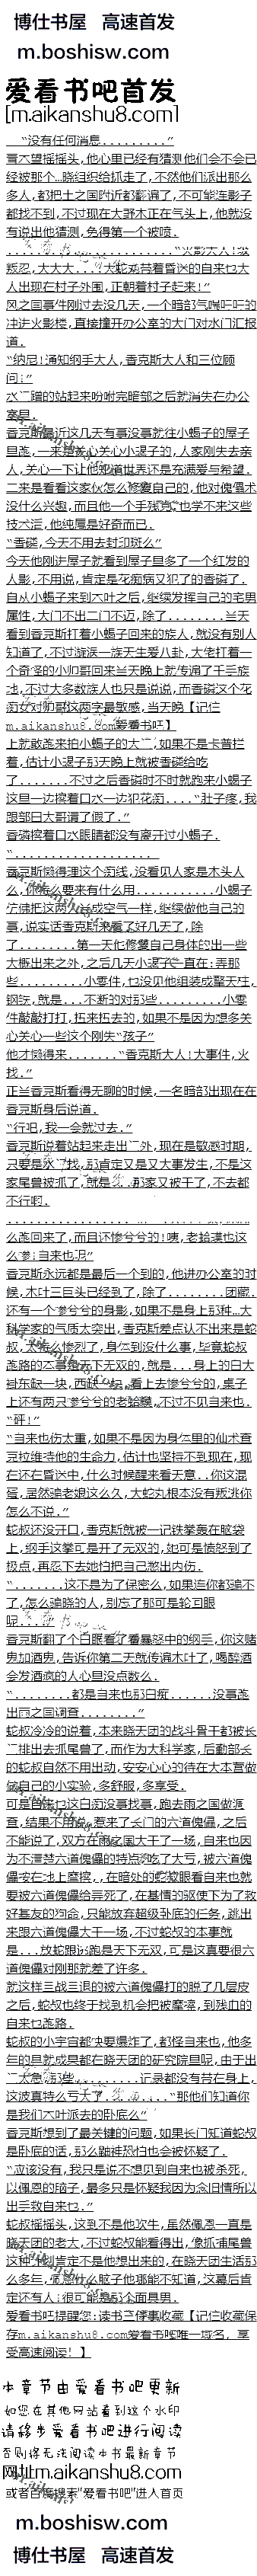 博仕书屋 高速首发
m.boshisw.com
爱看书吧首发
[m.aikanshu8.com]
“没有任何消息.........”
摇摇头,他心里已经有猜测他们会不会已
经被那个…晓组织给抓走了,不然他们派出那么
多人,都把土之国附近都翻遍了,不可能连影子
都找不到,不过现在大野木正在气头上,他就没
有说出他猜测,免得第一个被喷.
叛忍,大大大...大蛇丸带着昏迷的自来也大
人出现在村子外围,正朝着村子赶来!”
风之国事件刚过去没几天,一个暗部气喘吁吁的
冲进火影楼,直接撞开办公室的大门对水门汇报
道.
“纳尼!通知纲手大人,香克斯大人和三位顾
问!”
水门蹭的站起来吩咐完暗部之后就消失在办公
室里.
香克斯最近这几天有事没事就往小蝎子的屋子
里跑,一来是关心关心小蝎子的,人家刚失去亲
人,关心一下让他知道世界还是充满爱与希望.
二来是看看这家伙怎么修复自己的,他对傀儡术
没什么兴趣,而且他一个手残党也学不来这些
技术活,他纯属是好奇而已.
“香磷,今天不用去封印班么”
今天他刚进屋子就看到屋子里多了一个红发的
人影,不用说,肯定是花痴病又犯了的香磷了.
自从小蝎子来到木叶之后,继续发挥自己的宅男
属性,大门不出二门不迈,除了........当天
看到香克斯打着小蝎子回来的族人,就没有别人
知道了,不过漩涡一族天生爱八卦,大佬打着一
个奇怪的小帅哥回来当天晚上就传遍了千手族
地,不过大多数族人也只是说说,而香磷这个花
痴女对帅哥这两字最敏感,当天晚【记住
m.aikanshu8.com爱看书吧】
上就敢跑来拍小蝎子的大门,如果不是卡普拦
着,估计小蝎子那天晚上就被香磷给吃
了.......不过之后香磷时不时就跑来小蝎子
这里一边擦着口水一边犯花痴....“肚子疼,我
跟部日大哥请了假了.”
香磷擦着口水眼睛都没有离开过小蝎子.
“...................
香克斯懒得理这个痴线,没看见人家是木头人
么,你怎么要来有什么用...........小蝎子
仿佛把这两人当成空气一样,继续做他自己的
事,说实话香克斯来看了好几天了,除
了........第一天他修复自己身体的出一些
大概出来之外,之后几天小蝎子一直在:弄那
些.........小零件,也没见他组装成擎天柱,
钢铁,就是...不断的对那些.........小零
件敲敲打打,扭来扭去的,如果不是因为想多关
心关心一些这个刚失“孩子”
他才懒得来.......“香克斯大人!大事件,火
找.”
正当香克斯看得无聊的时候,一名暗部出现在在
香克斯身后说道.
“行吧,我一会就过去.”
香克斯说着站起来走出门外,现在是敏感时期,
只要是水门找,那肯定又是又大事发生,不是这
家尾兽被抓了,就是...那家又被干了,不去都
不行啊.
么跑回来了,而且还惨兮兮的!咦,老蛤蟆也这
么惨!自来也呢”
香克斯永远都是最后一个到的,他进办公室的时
候,木叶三巨头已经到了,除了........团藏.
还有一个惨兮兮的身影,如果不是身上那种…大
科学家的气质太突出,香克斯差点认不出来是蛇
叔,太特么惨烈了,身体到没什么事,毕竟蛇叔
跑路的本事是天下无双的,就是...身上的白大
褂东缺一块,西缺一块,看上去惨兮兮的,桌子
上还有两只惨兮兮的老蛤蟆,不过不见自来也.
“砰!”
“自来也伤太重,如果不是因为身体里的仙术查
克拉维持他的生命力,估计也坚持不到现在,现
在还在昏迷中,什么时候醒来看天意..你这混
蛋,居然骗老娘这么久,大蛇丸根本没有叛逃你
怎么不说.”
蛇叔还没开口,香克斯就被一记铁拳轰在脑袋
上,纲手这拳可是开了元双的,她可是愤怒到了
极点,再忍下去她怕把自己憋出内伤.
“.......这不是为了保密么,如果连你都骗不
了,怎么骗晓的人,别忘了那可是轮回眼
呢....”
香克斯翻了个白眼看了看暴怒中的纲手,你这赌
鬼加酒鬼,告诉你第二天就传遍木叶了,喝醉酒
会发酒疯的人心里没点数么.
“........都是自来也那白痴......没事跑
出雨之国调查........”
蛇叔冷冷的说着,本来晓天团的战斗骨干都被长
门排出去抓尾兽了,而作为大科学家,后勤部长
的蛇叔自然不用出动,安安心心的待在大本营做
做自己的小实验,多舒服,多享受.
可是自来也这白痴没事找事,跑去雨之国做调
查,结果不用说,惹来了长门的六道傀儡,之后
不能说了,双方在雨之国大干了一场,自来也因
为不清楚六道傀儡的特点吃了大亏,被六道傀
儡按在地上摩擦,,在暗处的蛇叔眼看自来也就
要被六道傀儡给弄死了,在基情的驱使下为了救
好基友的狗命,只能放弃超级卧底的任务,跳出
来跟六道傀儡大干一场,不过蛇叔的本事就
是...放蛇跟逃跑是天下无双,可是这真要很六
道傀儡对刚那就差了许多.
就这样三战三退的被六道傀儡打的脱了几层皮
之后,蛇叔也终于找到机会把被摩擦,到残血的
自来也跑路.
蛇叔的小宇宙都快要爆炸了,都怪自来也,他多
年的科研成果都在晓天团的研究院里呢,由于出
门太急,那些...........记录都没有带在身上,
这波真特么亏大了.........“那他们知道你
是我们木叶派去的卧底么”
香克斯想到了最关键的问题,如果长门知道蛇叔
是卧底的话,那么鼬神恐怕也会被怀疑了.
“应该没有,我只是说不想见到自来也被杀死,
以佩恩的脑子,最多只是怀疑我因为念旧情所以
出手救自来也.”
蛇叔摇摇头,这到不是他吹牛,虽然佩恩一直是
晓天团的老大,不过蛇叔能看得出,像抓捕尾兽
这种计划肯定不是他想出来的,在晓天团生活那
么多年,佩恩什么脑子他那能不知道,这幕后肯
定还有人,很可能是那个面具男.
爱看书吧提醒您:读书三件事收藏【记住收藏保
存m.aikanshu8.com爱看书吧唯一域名, 享
受高速阅读! 】
本章节由爱看书吧更新
如您在其他网站看到这个水印
请移步爱看书吧进行阅读
否则将无法阅读本书最新章节
网址m.aikanshu8.com
或者百度搜索“爱看书吧”进入首页
m.boshisw.com
博仕书屋 高速首发